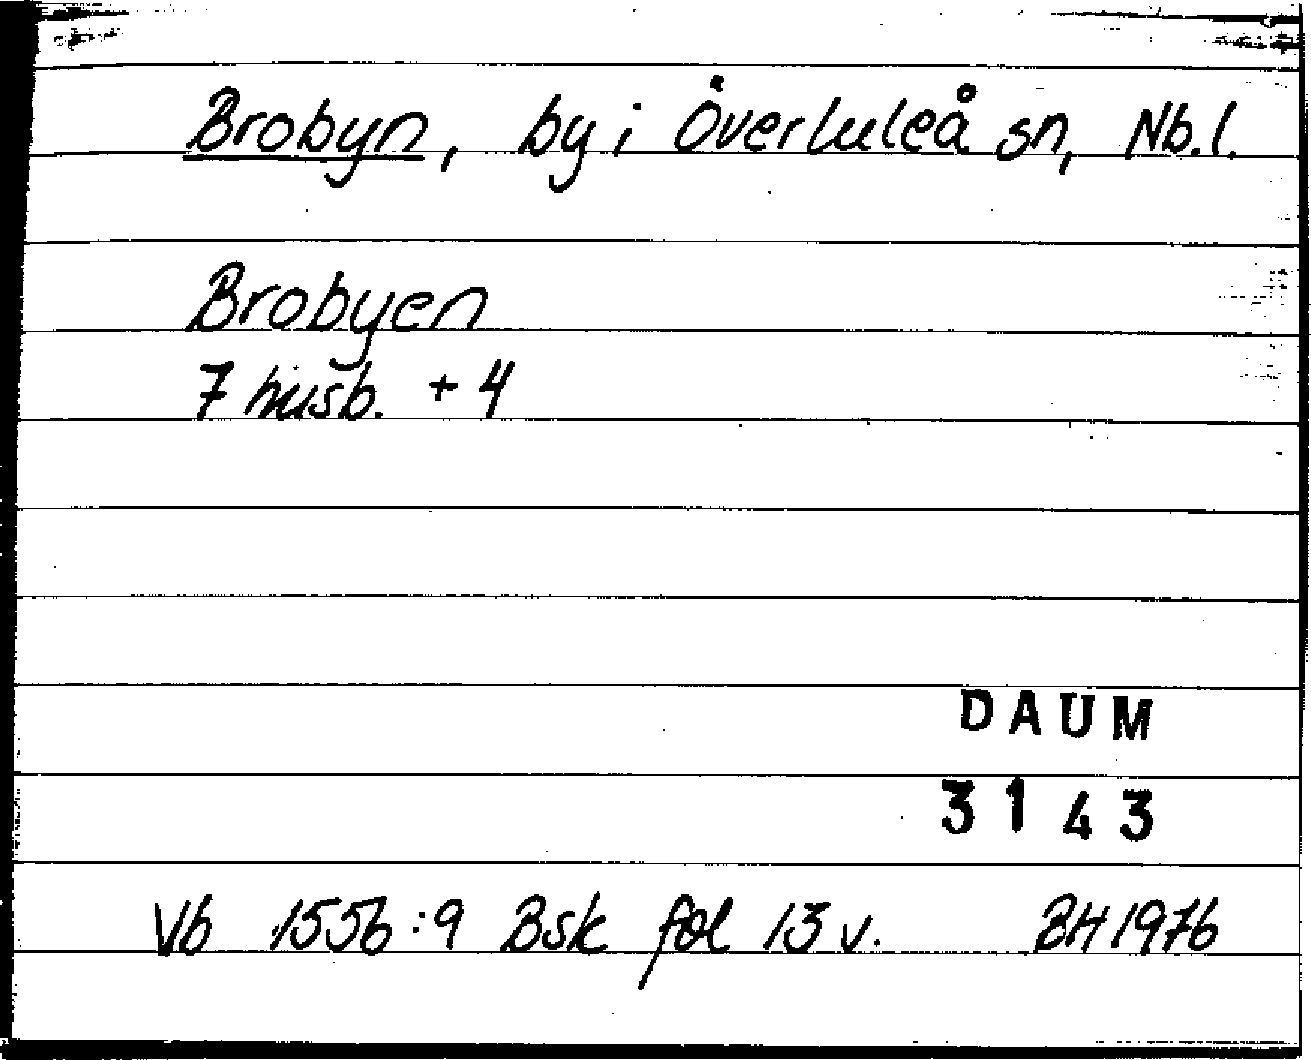 Brobyn, by i Överluleå sn, Nb.l.
Brobyen
7 husb. + 4
DAUM
3143
Vb 1556:9 Bsk fol 13 v. BH 1976